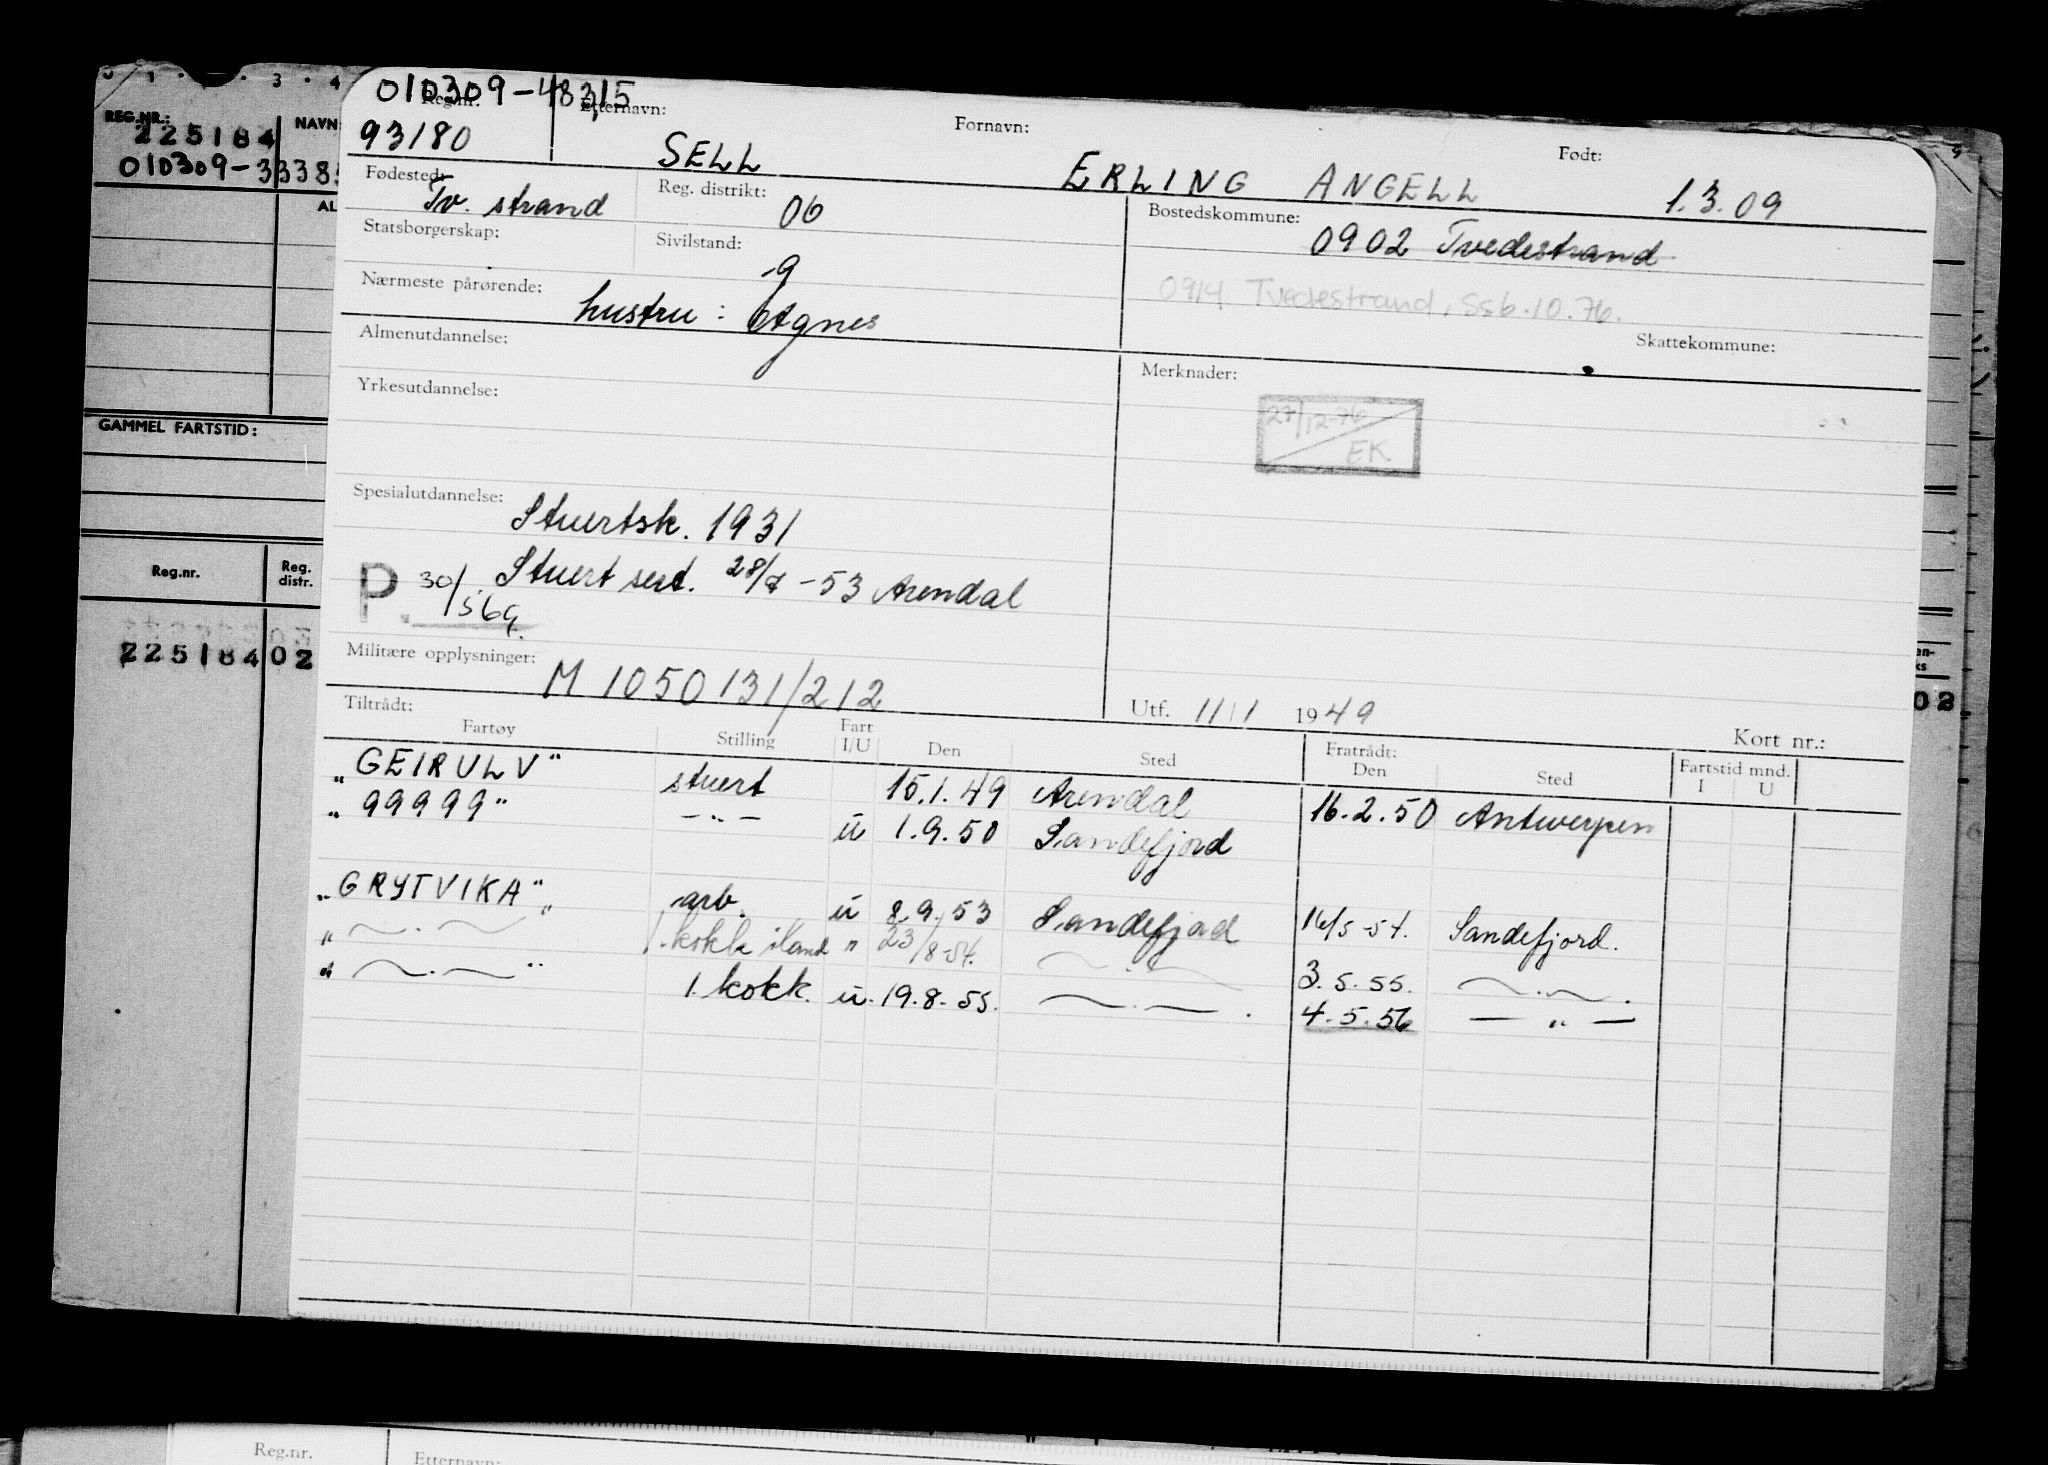 0 1 · 3 · 4
REG.NR.: NAVN
225184
010309-3338
AL
GAMMEL FARTSTID:
Reg.nr. Reg. distr.
225184 02
010309-48315
Reg.nr. Etternavn: Fornavn: Født:
93180 SELL ERLING ANGELL 1.3.09
Fødested: Tv. strand Reg. distrikt: 06 Bostedskommune: 0902 Tvedestrand
Statsborgerskap: Sivilstand: g
0914 Tvedestrand, Ssb. 10.76.
Nærmeste pårørende: hustru: Agnes
Skattekommune:
Almenutdannelse: Merknader:
27/12-76 EK
Yrkesutdannelse:
Spesialutdannelse: Stuertsk. 1931
Stuert sert. 28/7-53 Arendal
P. 30/5 69.
Militære opplysninger: M 1050131/212
Utf. 11/1 1949
Kort nr.:
Tiltrådt: Fratrådt:
Fartøy Stilling Fart I/U Den Sted Den Sted Fartstid mnd. I U
"GEIRULV" stuert 15.1.49 Arendal 16.2.50 Antwerpen
"99999" —"— u 1.9.50 Sandefjord
"GRYTVIKA" arb. u 8.9.53 Sandefjord 16/5-54. Sandefjord.
" —.— " 1. kokk iland " 23/8-54. —.— 3.5.55. —.—.
" —.— " 1. kokk. u. 19.8-55. —.—. 4.5.56 —"—
en-
ks
02
Reg.nr. Etternavn: